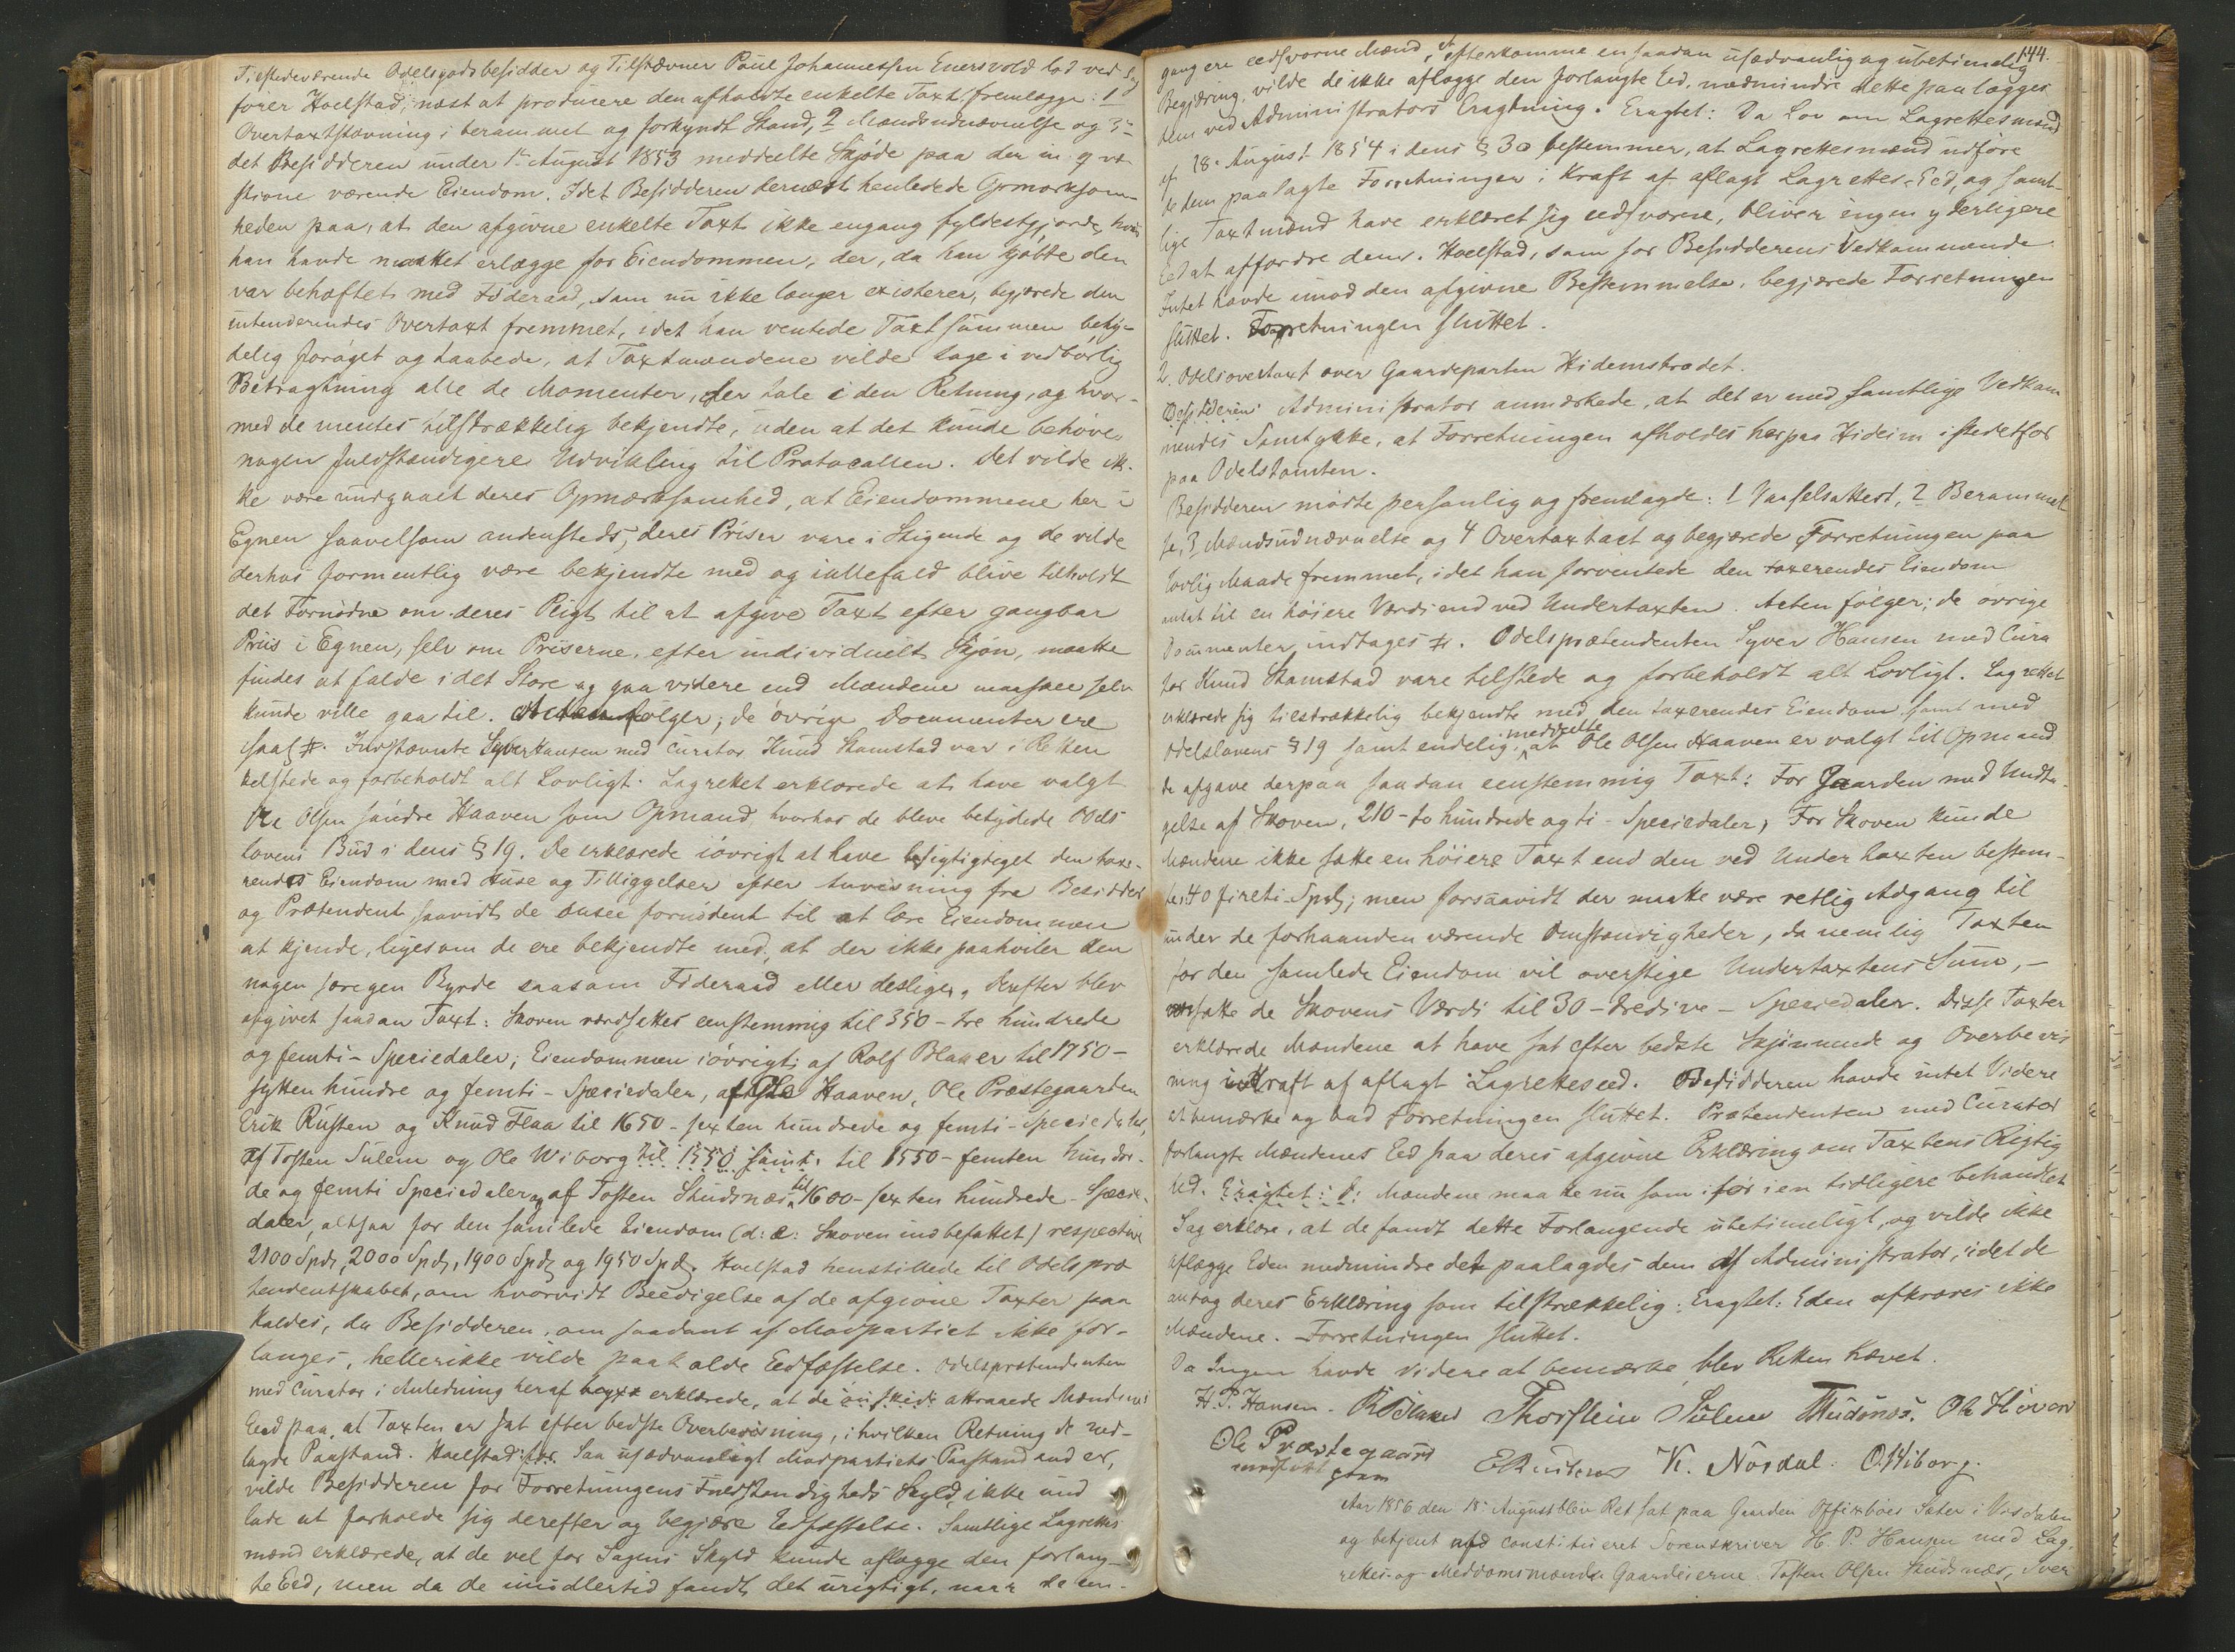 Tilstedeværende Odelsgodsbesidder og Tilstævner Poul Johannessen Enersvold lod ved Sag
fører Hoelstad, næst at producere den afholdte enkelte Taxt, fremlægge: 1
Overtaxtstævning i berammet og forkyndt Stand, 2 Mændsudnævnelse og 3
det Besidderen under 1ste August 1853 meddeelte Skjøde paa den in qvæ
stione værende Eiendom. Idet Besidderen dernæst henledede Opmærksom
heden paa, at den afgivne enkelte Taxt ikke engang fyldestgjorde, hvad
han havde maattet erlægge for Eiendommen, der, da han kjøbte den
var behæftet med Føderaad, som nu ikke længer existerer, begjærede den
intenderendes Overtaxt fremmet, idet han ventede Taxtsummen bety-
delig forøget og haabede, at Taxtmændene vilde tage i vedbørlig
Betragtning alle de Momenter, der tale i den Retning, og hvor-
med de mentes tilstrækkelig bekjendte, uden at det kunde behøve
nogen fuldstændigere Udvikling til Protocollen. Det vilde ik-
ke være undgaaet deres Opmærksomhed, at Eiendommene her i
Egnen saavelsom andensteds, deres Priser vare i Stigende og de vilde
derhos formentlig være bekjendte med og iallefald blive tilholdt
det Fornødne om deres Pligt til at afgive Taxt efter gangbar
Priis i Egnen, selv om Priserne, efter individuelt Skjøn, maatte
findes at falde i det Store og gaa videre end Mændene maaskee selv
kunde ville gaa til. Acten følger; de øvrige Documenter ere
saal. Indstævnte Syver Hansen med Curator Knud Stamstad var i Retten
tilstede og forbeholdt alt Lovligt. Lagrettet erklærede at have valgt
Ole Olsen søndre Haaven som Opmand, hvorhos de bleve betydede Odels
lovens Bud i dens § 19. De erklærede iøvrigt at have besigtigtiget den taxe-
rendes Eiendom med Huse og Tilliggelser efter Anvisning fra Besidder
og Prætendent saavidt de ansee fornødent til at lære Eiendommen
at kjende, ligesom de ere bekjendte med, at der ikke paahviler den
nogen særegen Byrde saasom Føderaad eller deslige. Derefter blev
afgivet saadan Taxt: Skoven værdsettes eenstemmig til 350 - tre hundrede
og femti - Speciedaler; Eiendommen iøvrigt af Rolf Blaker til 1750 -
sytten hundre og femti - Speciedaler, af Ole Haaven, Ole Præstegaarden
Erik Rusten og Knud Flaa til 1650 - sexten hundrede og femti - Speciedaler,
af Tosten Sulem og Ole Wiborg til 1550 samt til 1550 - femten hundre-
de og femti Speciedaler og af Tosten Skudsnæs til 1600 - sexten hundrede - Specie-
daler, altsaa for den samlede Eiendom (d: e: Skoven indbefattet) respective
2100 Spd, 2000 Spd, 1900 Spd og 1950 Spd. Hoelstad henstillede til Odelspræ
tendentskabet, om hvorvidt Beedigelse af de afgivne Taxter paa
kaldes, da Besidderen, om saadant af Modpartiet ikke for-
langes, heller ikke vilde paakalde Eedfæstelse. Odelsprætendenten
med Curator i Anledning heraf erklærede, at de attraaede Mændenes
Eed paa, at Taxten er sat efter bedste Overbeviisning, i hvilken Retning de ned-
lagde Paastand. Hoelstad: Saa usædvanligt Modpartiets Paastand end er,
vilde Besidderen for Forretningens Fuldstændigheds Skyld, ikke und
lade at forholde sig derefter og begjære Eedfæstelse. Samtlige Lagrettes
mænd erklærede, at de vel for Sagens Skyld kunde aflægge den forlang-
te Eed, men da de imidlertid fandt det urigtigt, naar de een-
144.
gang ere eedsvorne Mænd, at efterkomme en saadan usædvanlig og ubetimelig
Begjæring, vilde de ikke aflægge den forlangte Eed, medmindre dette paalægges
dem ved Administrators Eragtning. Eragtet: Da Lov om Lagrettesmænd
af 18. August 1854 i dens § 30 bestemmer, at Lagrettesmænd udføre
de dem paalagte Forretninger i Kraft af aflagt Lagrettes-Eed, og samt-
lige Taxtmænd have erklæret sig eedsvorne, bliver ingen yderligere
Eed at affordre dem. Hoelstad, som for Besidderens Vedkommende
Intet havde imod den afgivne Bestemmelse, begjærede Forretningen
sluttet. Forretningen sluttet.
2. Odelsovertaxt over Gaardeparten Hidemstrædet.
Administrator anmærkede, at det er med samtlige Vedkom
mendes Samtykke, at Forretningen afholdes her paa Hideim istedetfor
paa Odelstomten.
Besidderen mødte personlig og fremlagde: 1 Vaaselsattest, 2 Berammel
se, 3 Mændsudnævnelse og 4 Overtaxtact og begjærede Forretningen paa
lovlig Maade fremmet, idet han forventede den taxerendes Eiendom
ansat til en høiere Værdi end ved Undertaxten. Acten følger; de øvrige
Documenter indtages. Odelsprætendenten Syver Hansen med Cura
tor Knud Stamstad vare tilstede og forbeholdt alt Lovligt. Lagrettet
erklærede sig tilstrækkelig bekjendte med den taxerendes Eiendom samt med
Odelslovens § 19 samt endelig meddeelte at Ole Olsen Haaven er valgt til Opmand
de afgave derpaa saadan eenstemmig Taxt: For Gaarden med Undta-
gelse af Skoven, 210 - to hundrede og ti - Speciedaler, For Skoven kunde
Mændene ikke sætte en høiere Taxt end den ved Undertaxten bestem-
te, 40 firti Spd; men forsaavidt der maatte være retlig Adgang til
under de forhaanden værende Omstændigheder, da nemlig Taxten
for den samlede Eiendom vil overstige Undertaxtens Sum, -
satte de Skovens Værdi til 30 - tredive - Speciedaler. Disse Taxter
erklærede Mændene at have sat efter bedste Skjønnende og Overbevis
ning i Kraft af aflagt Lagretteseed. Besidderen havde intet Videre
at bemærke og bad Forretningen sluttet. Prætendenten med Curator
forlangte Mændenes Eed paa deres afgivne Erklæring om Taxtens Rigtig
hed. Eragtet: Mændene maatte nu som før i en tidligere behandlet
Sag erklære, at de fandt dette Forlangende ubetimeligt, og vilde ikke
aflægge Eden medmindre det paalagdes dem af Administrator, idet de
antog deres Erklæring som tilstrækkelig: Eragtet: Eden afkræves ikke
Mændene. - Forretningen sluttet.
Da Ingen havde videre at bemærke, blev Retten hævet.
H. P. Hansen. R Blaker Thorstein Sulem Ole Høven
Ole Præstegaard E Rusten K. Nordal. O. Wiborg.
Aar 1856 den 18. August blev Ret sat paa Gaarden Sæter i Visdalen
og betjent af constitueret Sorenskriver H. P. Hansen med Lag-
rettes- og Meddomsmænd Gaardeierne Tosten Olsen Skudsnæs, Iver